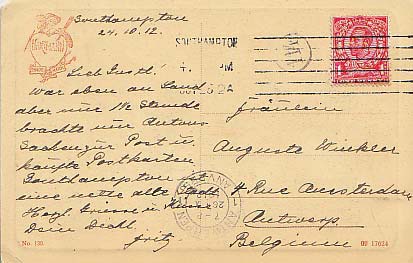 Southampton
24.10.12.
Lieb Gustl!
war eben an Land
aber nur 1/2 Stunde
brachte nur
Sachen zur Post u.
kaufte Postkarten
Southampton ist
eine nette alte Stadt
Herzl. Grüsse u. Küsse
Dein Dich l.
Fritz
No. 130.
SOUTHAMPTON
PM
OCT 25 12A
Fräulein
Auguste Winkler
4 Rue Amsterdam
Antwerp
Belgium
ANTWERPEN
ANVERS
7-F
26
17624